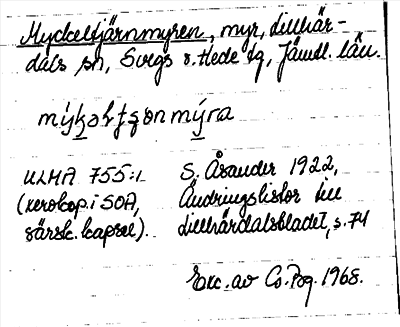 Myckeltjärnmyren, myr, Lillhär-
dals sn, Svegs o. Hede tg, Jämtl. län.
ULMA 755:1 S. Åsander 1922,
(xerokop. i SOA, Ändringslistor till
särsk. kapsel). Lillhärdalsbladet, s. 74
Exc. av Co. Pog. 1968.